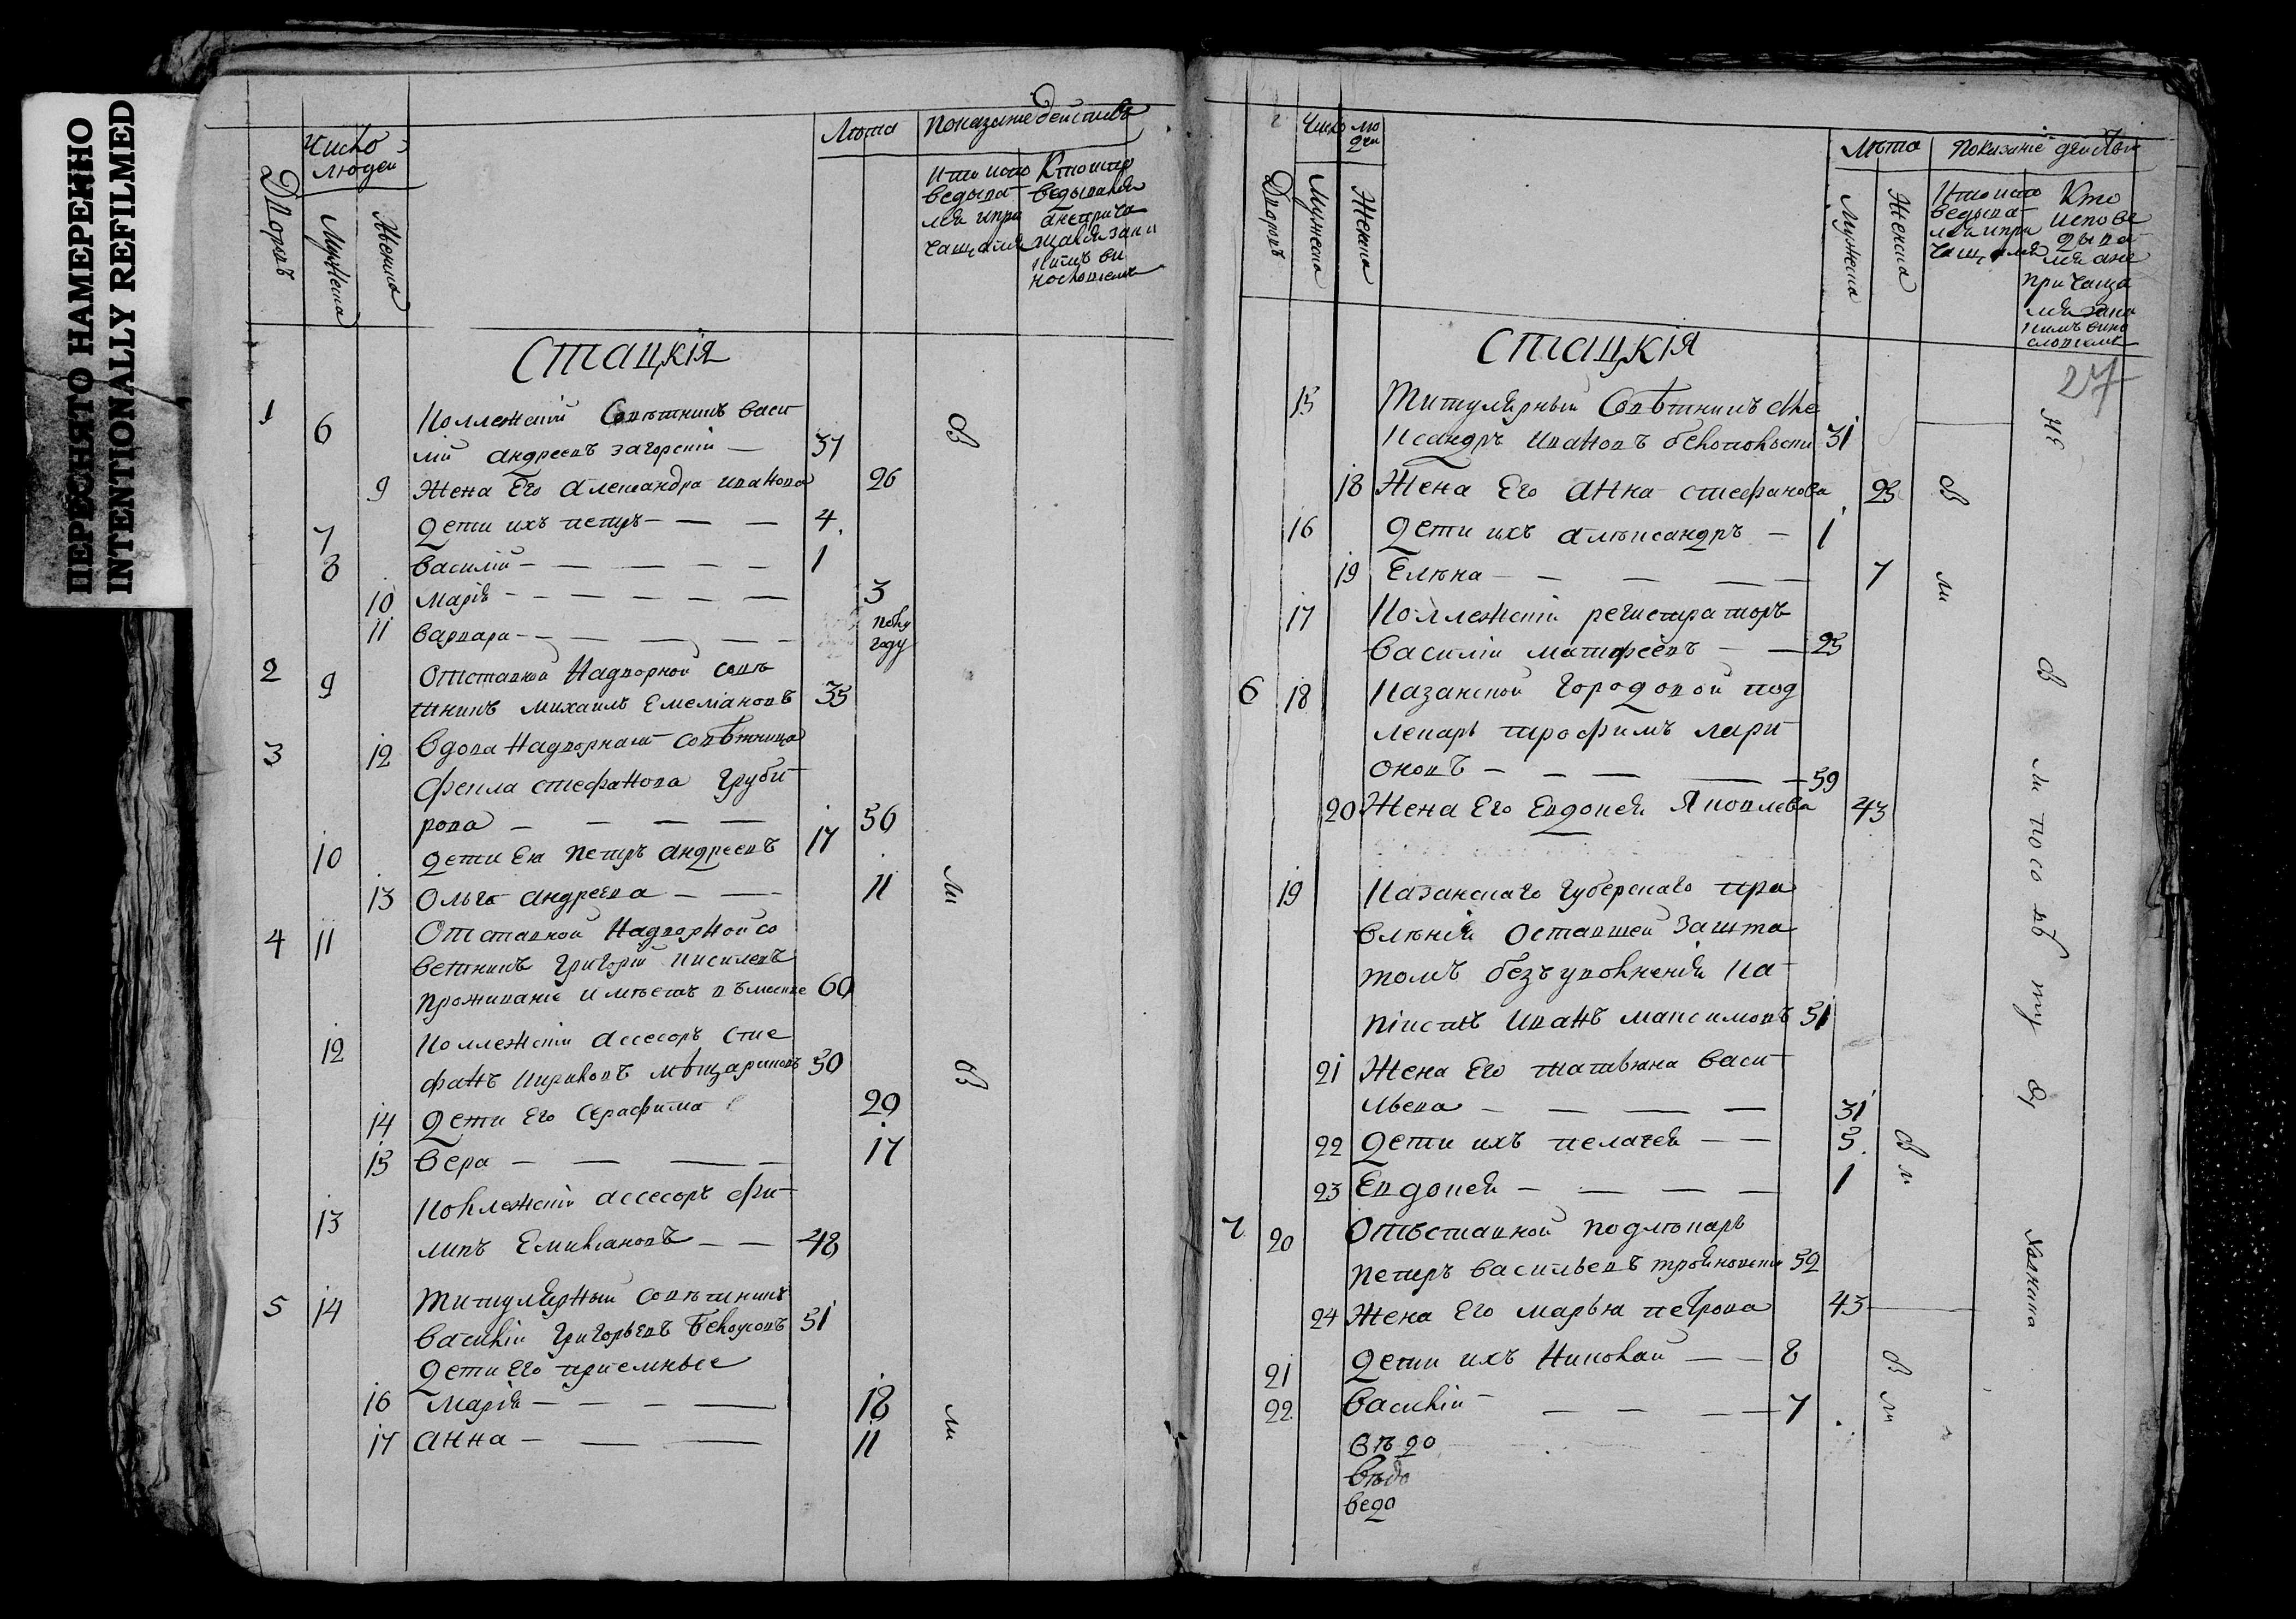 ПЕРЕСНЯТО НАМЕРЕННО
INTENTIONALLY REFILMED
Число людей
Дворовъ
Мужеска
Женска
Лѣта
Показание действъ
Кто испо
ведыва
лся и при
чащался
Кто испо
ведывался
а не прича
щался
Стацкія
1 6 Коллежский Советникъ Васи
лий Андреевъ Загорский — 37
9 Жена Его Александра Иванова 26
7 Дети ихъ Петръ — — — 4
8 Василий — — — — — 1
10 Марія — — — — — — 3
11 Варвара — — — — — — полу
году
2 9 Отставной Надворной Совѣ
тникъ Михаилъ Емелиановъ 35
3 12 Вдова Надворнаго Совѣтника
Фекла Стефанова Груби
рова — — — — 56
10 Дети Ея Петръ Андреевъ 17
13 Ольга Андреева — — 11
4 11 Отставной Надворной Со
ветникъ Григорий Киселевъ
проживание имѣетъ въ Москве 60
12 Коллежский Ассесоръ Сте
фанъ Кириловъ Мѣщариновъ 50
14 Дети Его Серафима 20
15 Вера — — — — 17
13 Коллежский Ассесоръ Фи
липъ Емилиановъ — — 48
5 14 Титулярный Совѣтникъ
Василий Григорьевъ Белоусовъ 51
Дети Его приемные
16 Марія — — — — 18
17 Анна — — — 11
Число людей
Дворовъ
Мужеска
Женска
Лѣта
Мужеска
Женска
Показание действъ
Кто испо
ведыва
лся и при
чащался
Кто
испове
дыва
лся а не
причаща
лся
27
Стацкія
15 Титулярный Совѣтникъ Але
ксандръ Ивановъ 31
18 Жена Его Анна Стефанова 25
16 Дети ихъ Алѣксандръ — 1
19 Елѣна — — — — 7
17 Коллежский регистраторъ
Василий Матфеевъ — — 25
6 18 Казанской Городовой под
лекарь Трофимъ Лари
оновъ — — — — 59
20 Жена Его Евдокея Яковлева 43
19 Казанскаго Губерскаго пра
влѣния Оставшей зашта
томъ безъ увольнения Ка
пиистъ Иванъ Максимовъ 51
21 Жена Его Татьяна Васи
льева — — — — 31
22 Дети ихъ Пелагея — — 5
23 Евдокея — — — — 1
7 20 Отъставной Подлѣкарь
Петръ Васильевъ 52
24 Жена Его Марья Петрова 43
21 Дети ихъ Николай — — 8
22 Василий — — — 7
Вѣдо
Вѣдо
Ведо